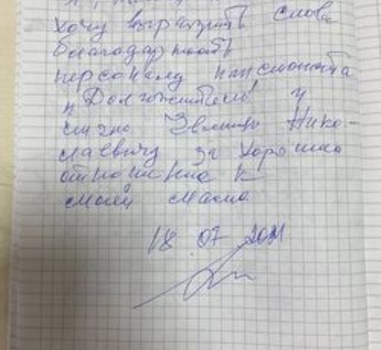 хочу выразить слова
благодарность
персоналу пансионата
"Долгожители" и
лично Нико-
лаевичу за хорошее
отношение к
моей маме
18 07 2021